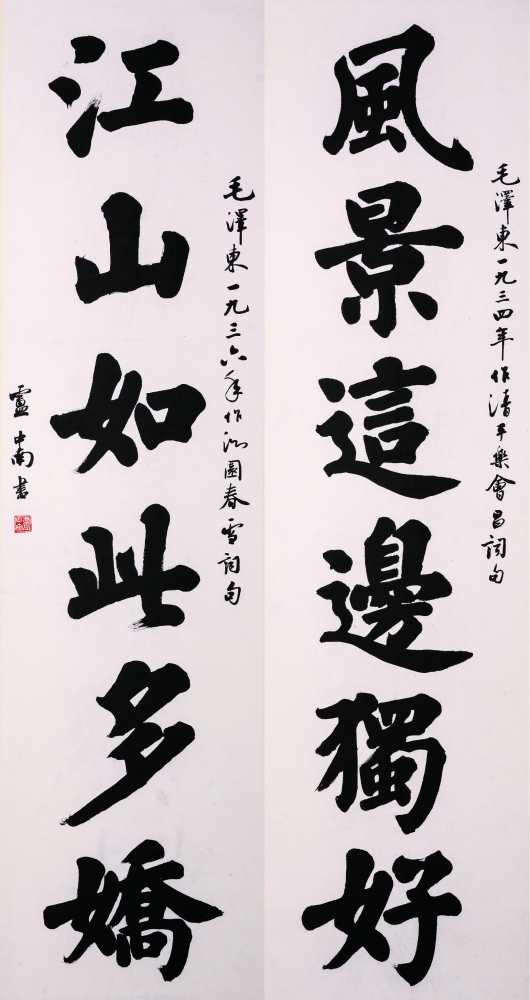 風景這邊獨好
毛澤東一九三四年作清平樂會昌詞句
江山如此多嬌
毛澤東一九三六年作沁園春雪詞句
盧中南书